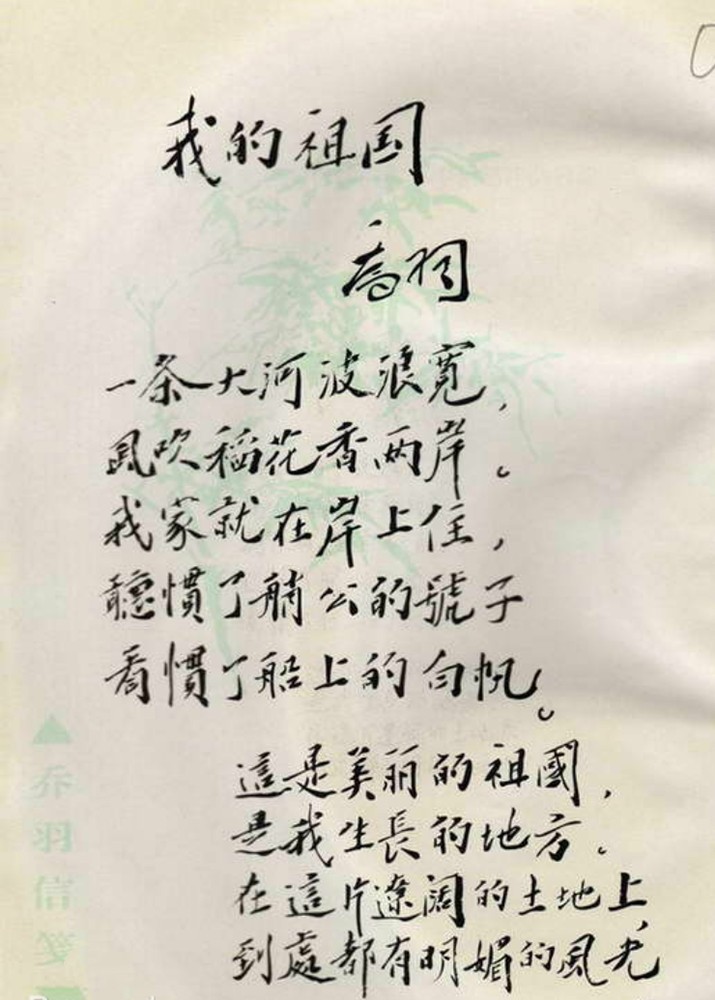 我的祖国
喬羽
一条大河波浪寬，
風吹稻花香两岸。
我家就在岸上住，
聽慣了艄公的號子
看慣了船上的白帆。
這是美丽的祖國，
是我生長的地方。
在這片遼阔的土地上，
到處都有明媚的風光
乔羽信笺